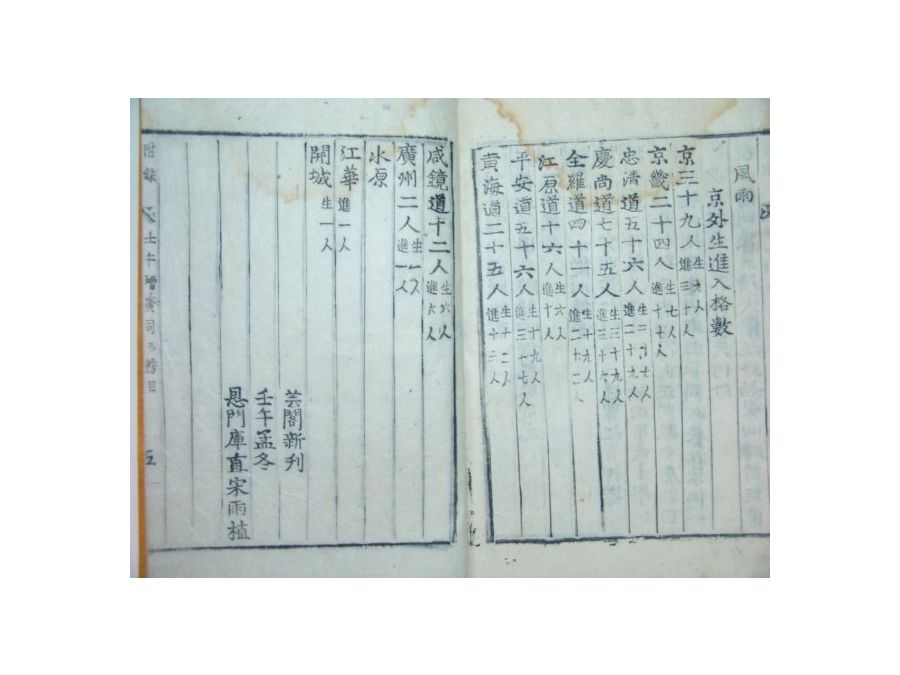 風雨
京外生進入格數
京三十九人生九人進三十人
京畿二十四人生七人進十七人
忠清道五十六人生二十七人進二十九人
慶尚道七十五人生三十九人進三十六人
全羅道四十一人生十九人進二十二
江原道十六人生六人進十人
平安道五十六人生十九人進三十七人
黃海道二十五人生十二人進十三人
咸鏡道十二人生六人進六人
廣州二人生一人進一人
水原
江華進一人
開城生一人
芸閣新刋
壬午孟冬
恩門庫直宋雨植
附錄 壬午增廣司馬榜目 五